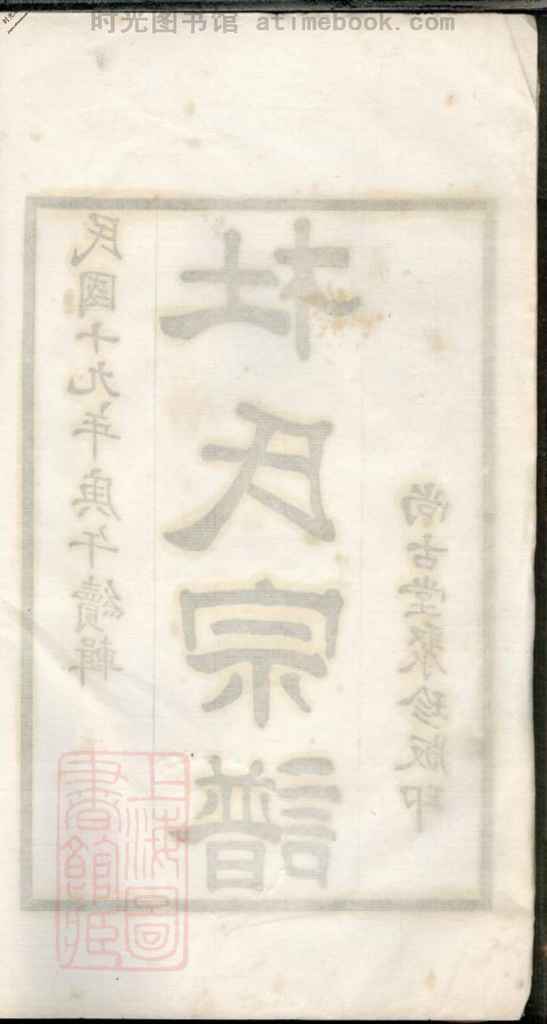 时光图书馆 atimebook.com
民國十九年庚午續輯
杜氏宗譜
尚古堂聚珍版印
上海圖書館藏